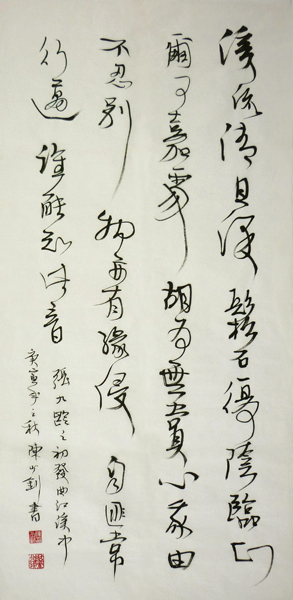 溪流清且深鬆石復陰臨正
爾可嘉處胡為無賞心我由
不忍別物每有緣侵自匪常
行邁誰能知此音
張九齡之初發曲江溪中
庚寅年之秋陳少書